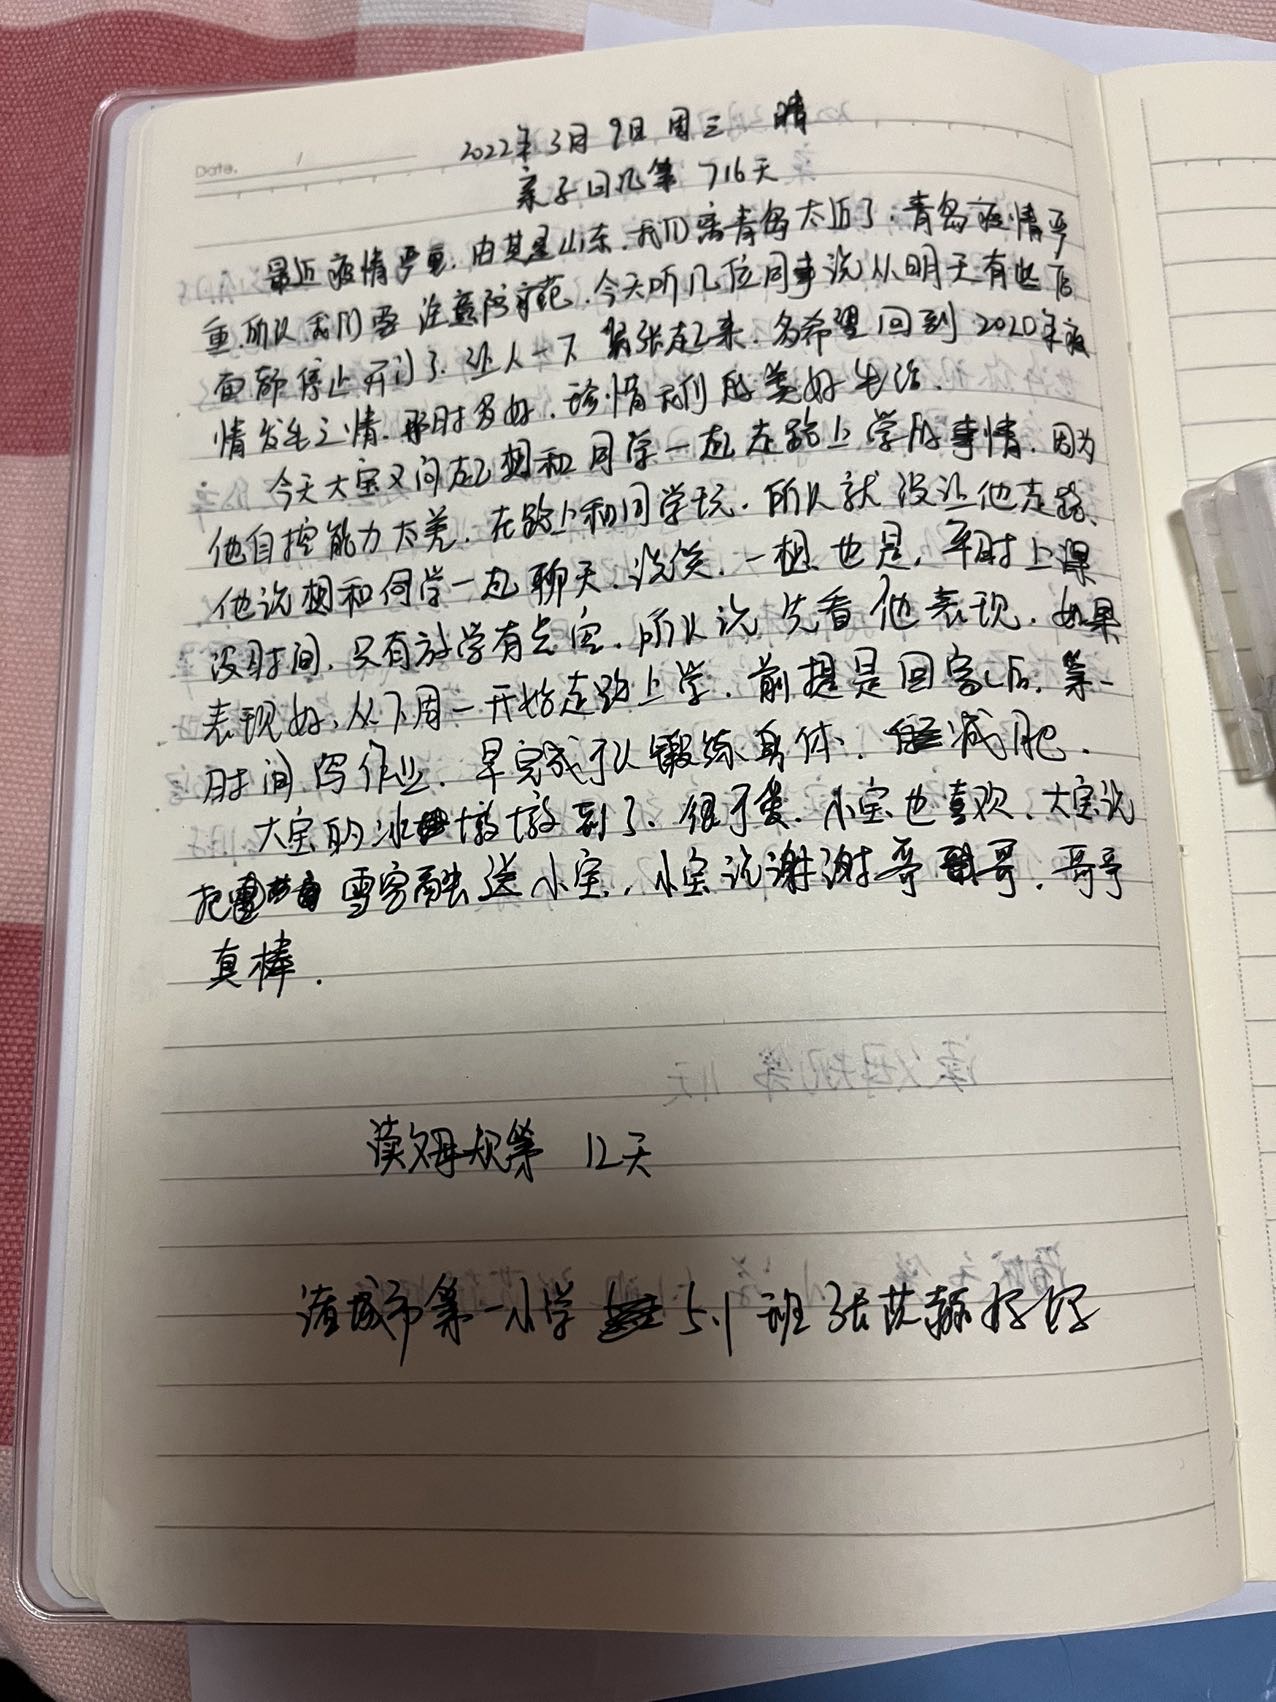 Date.
2022年3月9日 周三 晴
亲子日记第 716天
最近疫情严重，由其是山东，我们离青岛太近了，青岛疫情严
重，所以我们要注意防范，今天听几位同事说从明天有些店
面都停止开门了，让人一下紧张起来，多希望回到2020年疫
情发生之情，那时多好，珍惜我们的美好生活.
今天大宝又问起想和同学一起走路上学的事情，因为
他自控能力太差，在路上和同学玩，所以就没让他走路、
他说想和同学一起聊天、说笑，一想也是，平时上课
没时间，只有放学有点空，所以说先看他表现，如果
表现好，从下周一开始走路上学，前提是回家后，第一
时间写作业，早完成可以锻炼身体，减肥.
大宝的冰墩墩到了，很可爱，小宝也喜欢，大宝说
把雪容融送小宝，小宝说谢谢哥哥，哥哥
真棒.
读父母规第 12天
诸城市第一小学 5.1班 张芷赫妈妈